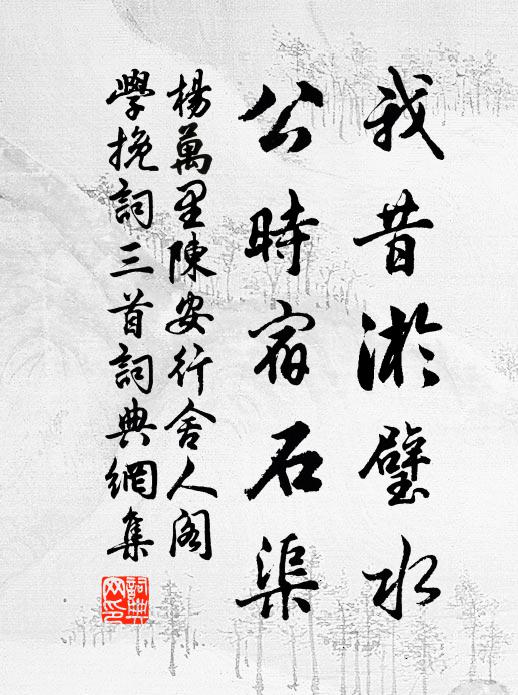 我昔游璧水
公時宿石渠
楊萬里陳安行舍人閣
學挽詞三首詞典網集
詞典网印